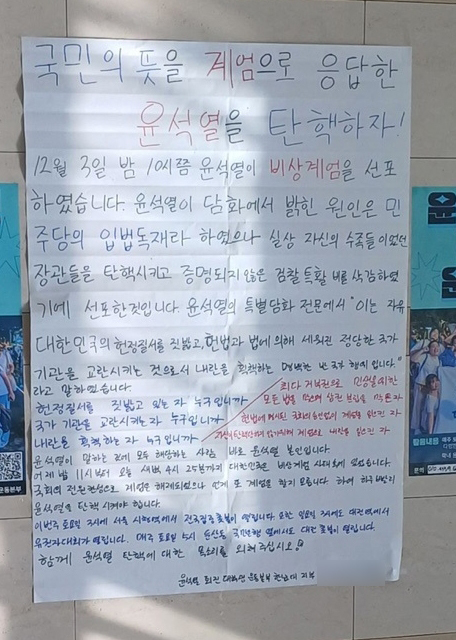 국민의 뜻을 계엄으로 응답한
윤석열을 탄핵하자!
12월 3일 밤 10시쯤 윤석열이 비상계엄을 선포
하였습니다. 윤석열이 담화에서 밝힌 원인은 민
주당의 입법독재라 하였으나 실상 자신의 수족들이었던
장관들을 탄핵시키고 증명되지 않은 검찰 특활비를 삭감하였
기에 선포한것입니다. 윤석열의 특별담화 전문에서 "이는 자유
대한민국의 헌정질서를 짓밟고, 헌법과 법에 의해 세워진 정당한 국가
기관을 교란시키는 것으로서 내란을 획책하는 명백한 반국가 행위입니다."
라고 말하였습니다.
헌정질서를 짓밟고 있는 자 누구입니까
국가 기관을 교란시키는 자 누구입니까
내란을 획책하는 자 누구입니까
최다 거부권으로
모든 법을
계엄을 일으킨 자
계엄으로 내란을 일으킨 자
윤석열이 말하는 것에 모두 해당하는 사람 바로 윤석열 본인입니다
어제 밤 11시부터 오늘 새벽 4시 25분까지 대한민국은 비상계엄 사태에 있었습니다.
국회의 전원찬성으로 계엄은 해제되었으나 언제 또 계엄을 할지 모릅니다. 하여 하루빨리
윤석열을 탄핵 시켜야 합니다.
이번주 토요일 3시에 서울 시청역에서 전국집중 촛불이 열립니다.
매주 토요일 5시 둔산동 국민은행 앞에서도 대전 촛불이 열립니다.
함께 윤석열 탄핵에 대한 목소리를 외쳐 주십시오!
윤석열 퇴진 대학생 운동본부 한남대 지부
운동본부